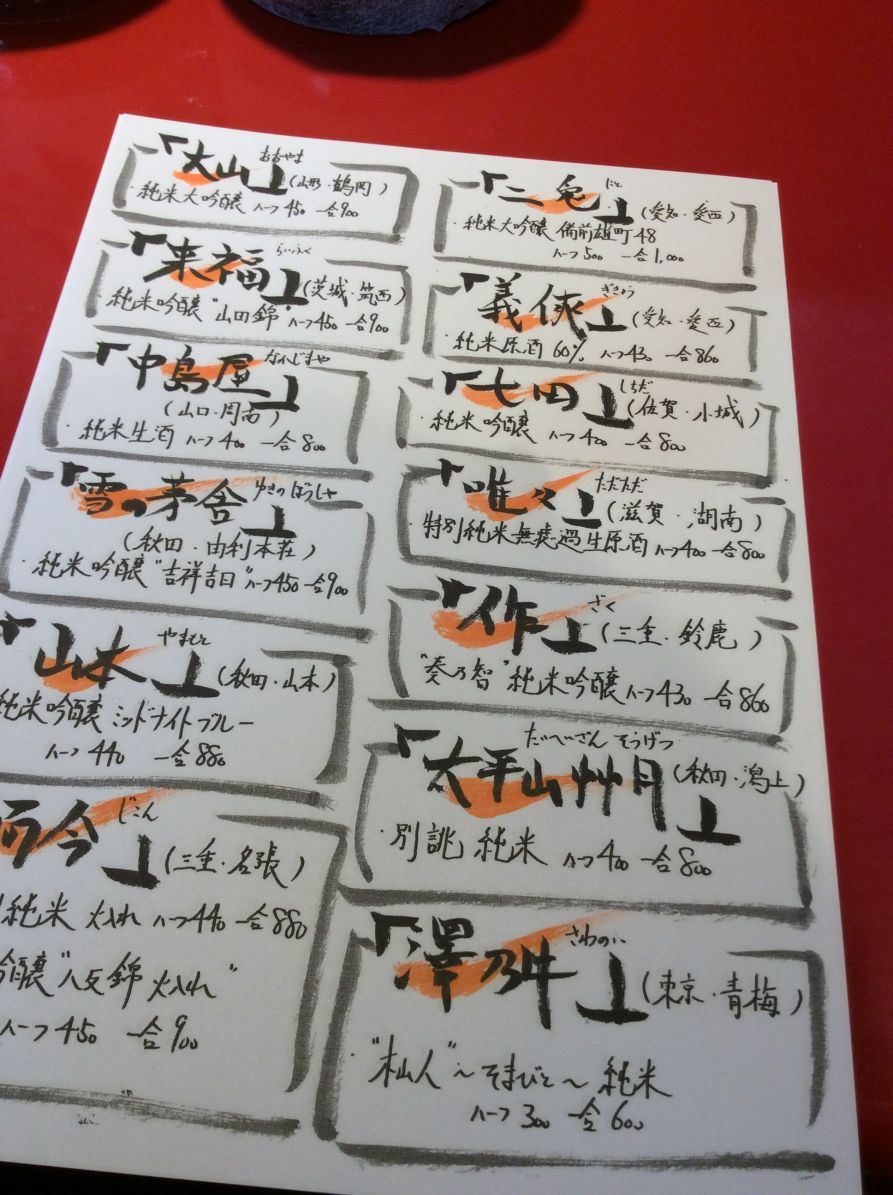 おおやま
「大山」(山形・鶴岡)
・純米大吟醸 ハーフ450 一合900
らいふく
「来福」(茨城・筑西)
純米吟醸"山田錦"ハーフ450 一合900
なかじまや
「中島屋」
(山口・周南)
・純米生酒 ハーフ400 一合800
ゆきのぼうしゃ
「雪の茅舎」
(秋田・由利本荘)
・純米吟醸"吉祥吉日"ハーフ450 一合900
やまもと
「山本」(秋田・山本)
純米吟醸 ミッドナイトブルー
ハーフ440 一合880
じこん
而今」(三重・名張)
純米 火入れ ハーフ440 一合880
吟醸"八反錦 火入れ"
ハーフ450 一合900
にと
「二兎」(愛知・愛西)
・純米大吟醸 備前雄町48
ハーフ500 一合1,000
ぎきょう
「義侠」(愛知・愛西)
・純米原酒60% ハーフ430 一合860
しちだ
「七田」(佐賀・小城)
・純米吟醸 ハーフ400 一合800
ただただ
「唯々」(滋賀・湖南)
特別純米無濾過生原酒 ハーフ400 一合800
ざく
「作」(三重・鈴鹿)
・"奏乃智"純米吟醸 ハーフ430 一合860
たいへいざん そうげつ
「太平山艸月」(秋田・潟上)
・別誂 純米 ハーフ400 一合800
さわのい
「澤乃井」(東京・青梅)
・"杣人"～そまびと～純米
ハーフ300 一合600